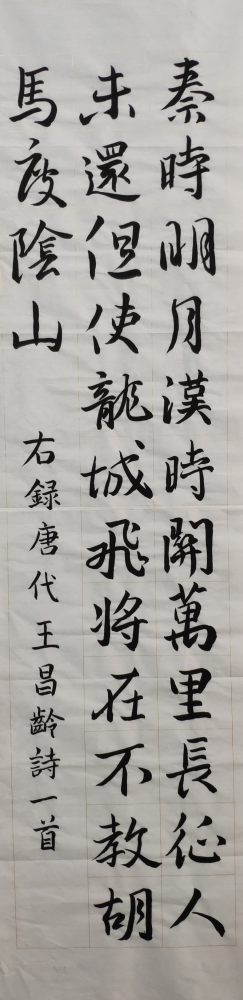 秦時明月漢時開萬里長征人
未還但使龍城飛將在不教胡
馬度陰山
右録唐代王昌齡詩一首